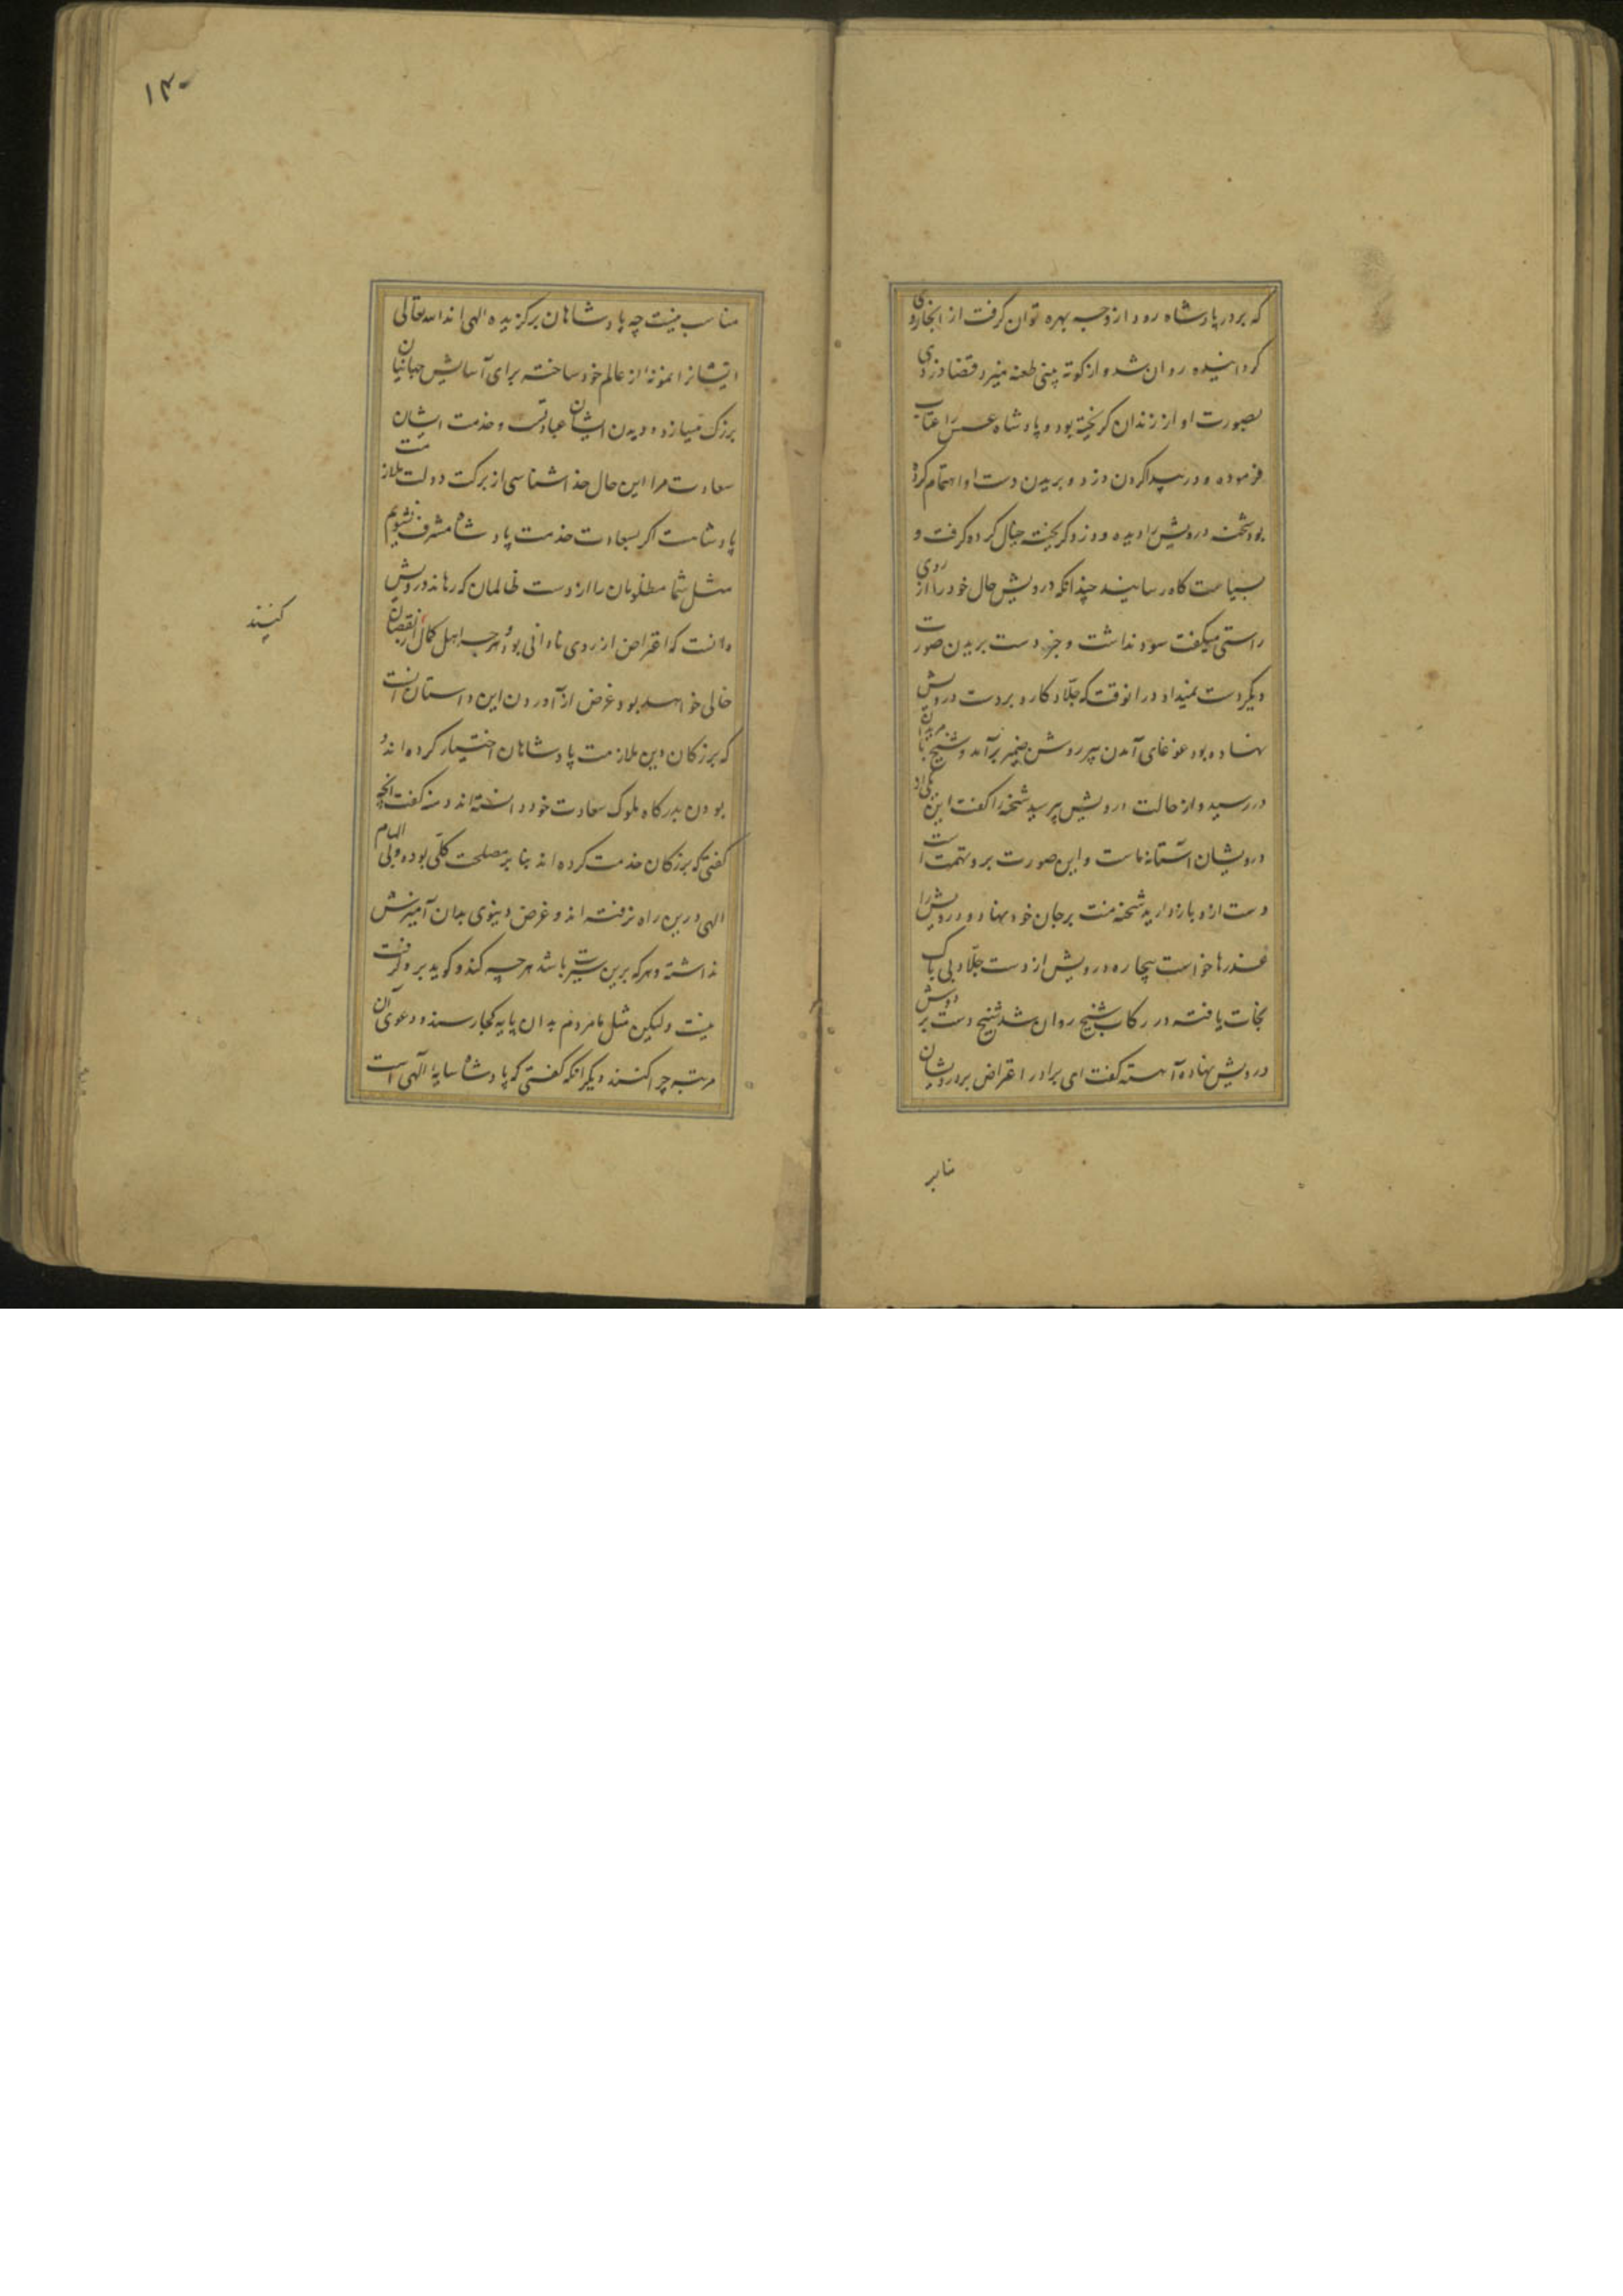 که بر در پادشاه رود ازو چه بهره توان گرفت از انجا روی
گردانیده روان شد و از کوته بینی طعنه میزد قضا را دزدی
بصورت او از زندان گریخته بود و پادشاه عسس را عتاب
فرموده و در پیدا کردن دزد و بریدن دست او اهتمام کرده
بود شحنه درویش را دیده و دزد گریخته خیال کرده گرفت و
بسیاست گاه رسانید چندانکه درویش حال خود را از روی
راستی میگفت سود نداشت و جز دست بریدن صورت
دیگر دست نمیداد در انوقت که جلّاد کارد بر دست درویش
نهاده بود غوغای آمدن پیر روشن ضمیر برآمد و شیخ با مریدان
در رسید و از حالت درویش پرسید شحنه را گفت این یکی از
درویشان آستانه ماست و این صورت برو تهمت است
دست ازو باز دارید شحنه منت بر جان خود نهاد و درویش را
عذرها خواست بیچاره درویش از دست جلّاد بی باک
نجات یافته در رکاب شیخ روان شد شیخ دست بر دوش
درویش نهاده آهسته گفت ای برادر اعتراض بر درویشان
منا بر
۱۴۰
مناسب نیست چه پادشاهان برگزیده الهی اند الله تعالی
ایشانرا نمونه از عالم خود ساخته برای آسایش جهانیان
بزرگ میسازد و دیدن ایشان عبادتست و خدمت ایشان
سعادت مرا این حال خداشناسی از برکت دولت ملازمت
پادشاهست اگر بسعادت خدمت پادشاه مشرف نشویم
مثل شما مظلومان را از دست ظالمان که رهاند درویش
دانست که اعتراض از روی نادانی بود و هرچه اهل کمال کنند از نقصان
خالی خواهد بود غرض از آوردن این داستان آنست
که بزرگان دین ملازمت پادشاهان اختیار کرده اند و
بودن بدرگاه ملوک سعادت خود دانسته اند دمنه گفت آنچه
گفتی که بزرگان خدمت کرده اند بنا بر مصلحت کلّی بوده و بی الهام
الهی درین راه نرفته اند و غرض دنیوی بدان آمیزش
نداشته و هر که برین سیرت باشد هرچه کند و گوید برو گرفت
نیست ولیکن مثل ما مردم بدان پایه کجا رسند و دعوی آن
مرتبه چرا کنند دیگر آنکه گفتی که پادشاه سایه الهی است
کنند